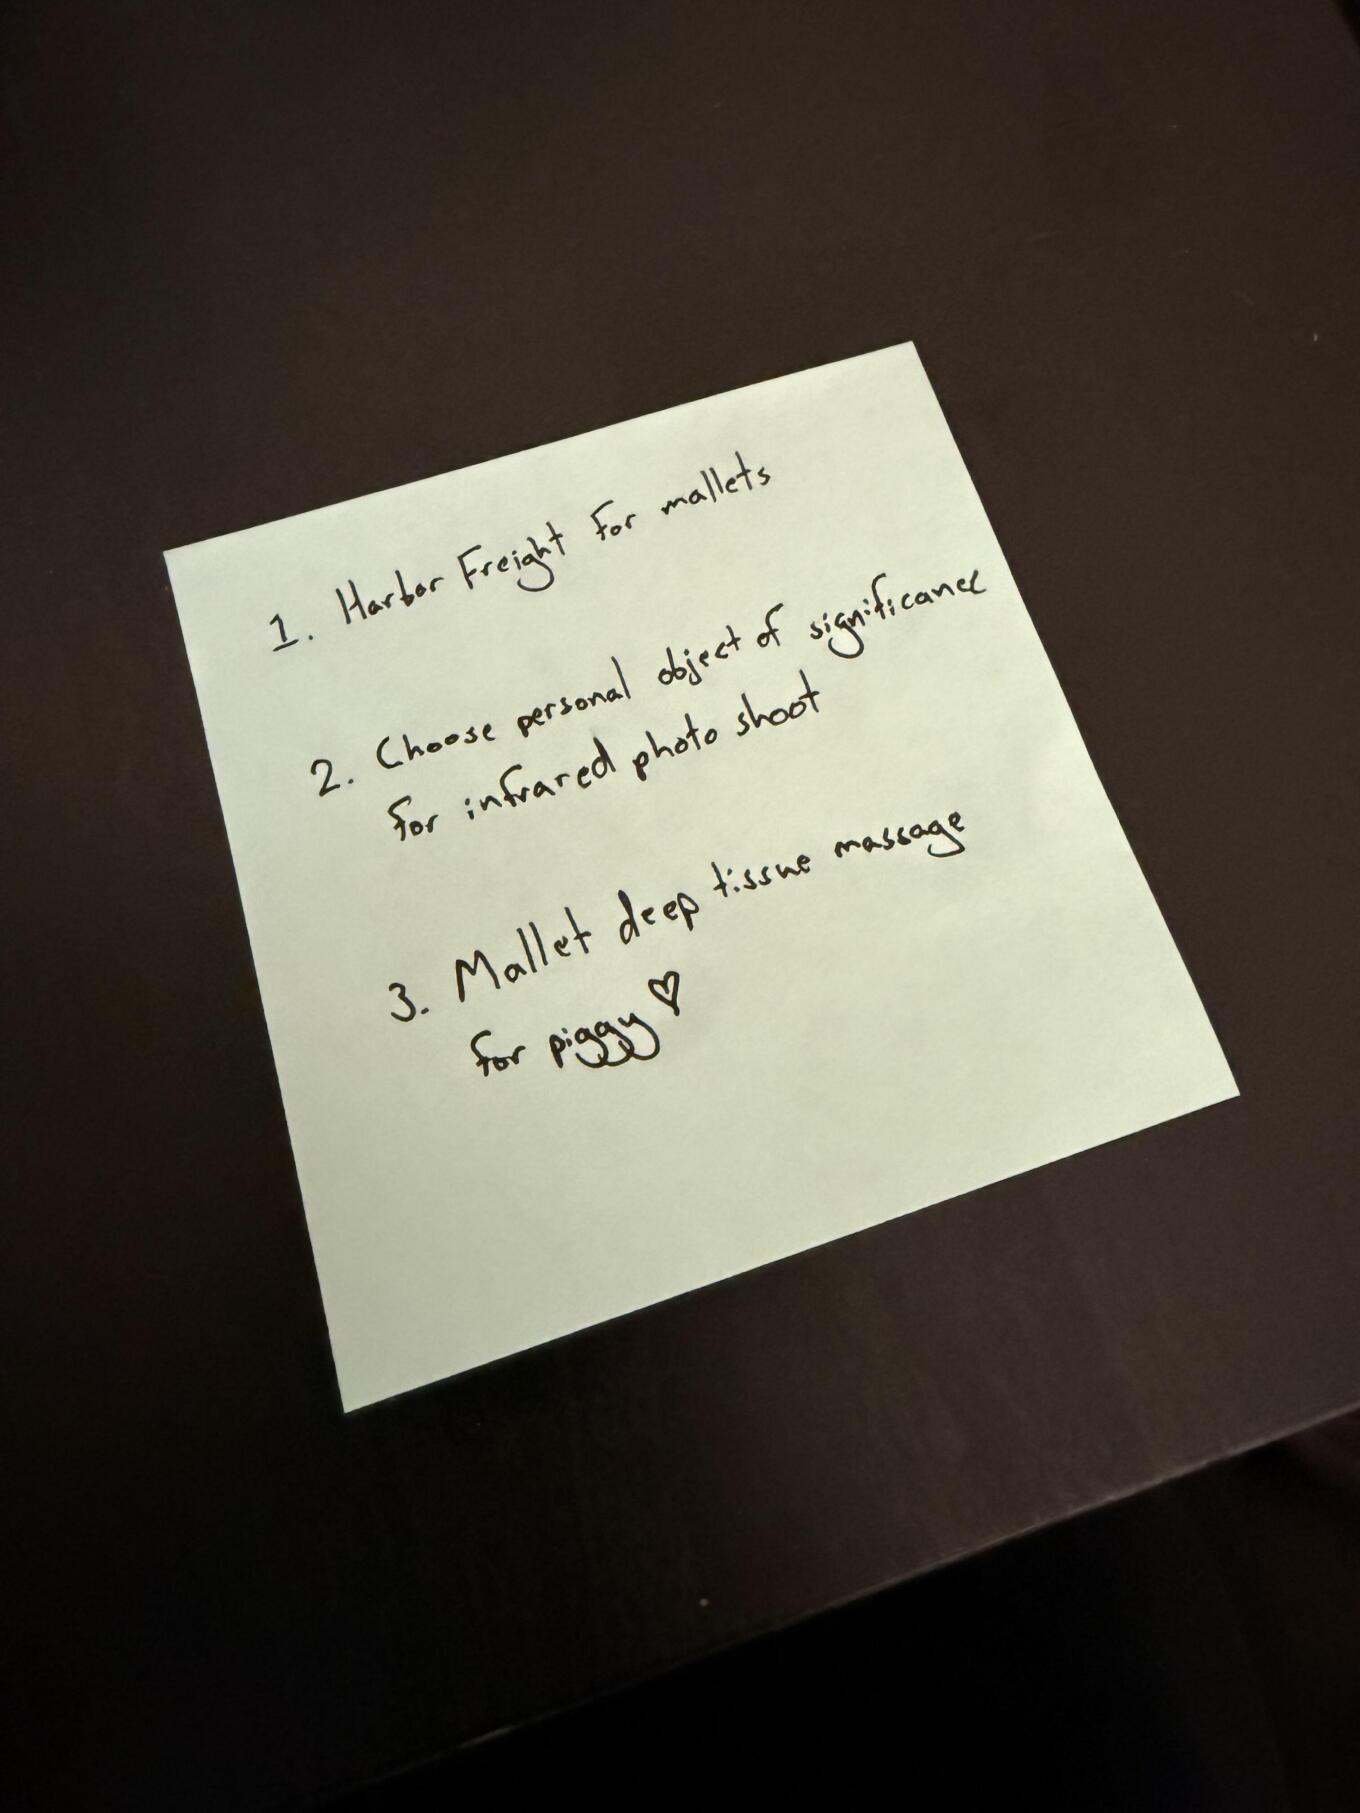 1. Harbor Freight for mallets
2. Choose personal object of significance
for infrared photo shoot
3. Mallet deep tissue massage
for piggy ♡